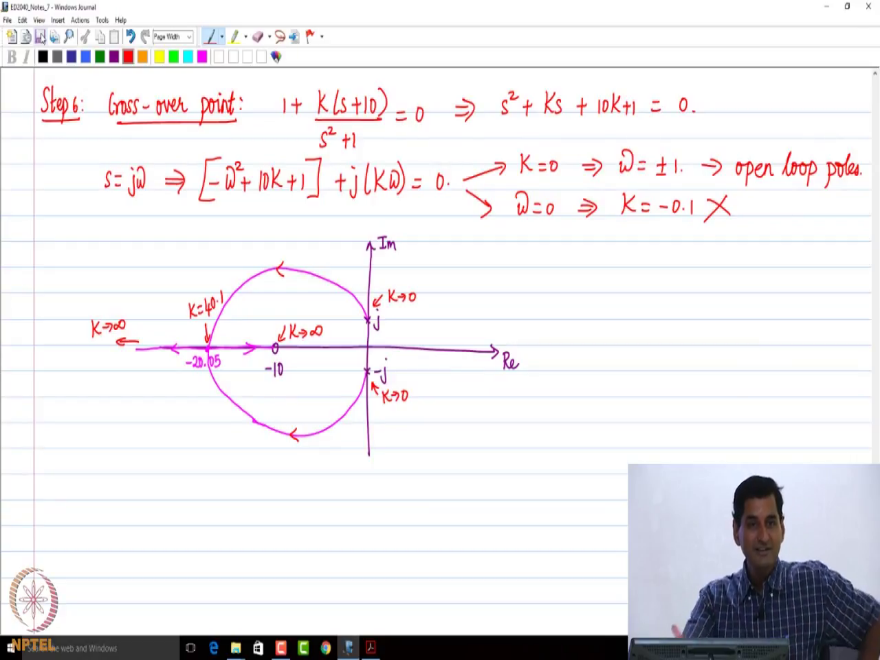 ED2040_Notes_7 - Windows Journal
File Edit View Insert Actions Tools Help
Page Width
B I
Step 6: Cross-over point: 1 + K(s+10)/(s²+1) = 0 ⇒ s² + Ks + 10K+1 = 0.
s=jω ⇒ [-ω²+10K+1] + j(Kω) = 0. → K=0 ⇒ ω=±1. → open loop poles.
→ ω=0 ⇒ K=-0.1 X
Im
K→0
j
K=40.1
K→∞
K→∞
-20.05
-10
Re
-j
K→0
NPTEL
the web and Windows